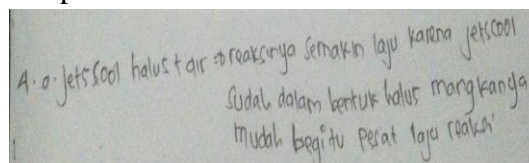 4.a. jetscool halus + air ⇒ reaksinya semakin laju karena jetscool
sudah dalam bentuk halus mangkanya
mudah begitu pesat laju reaksi